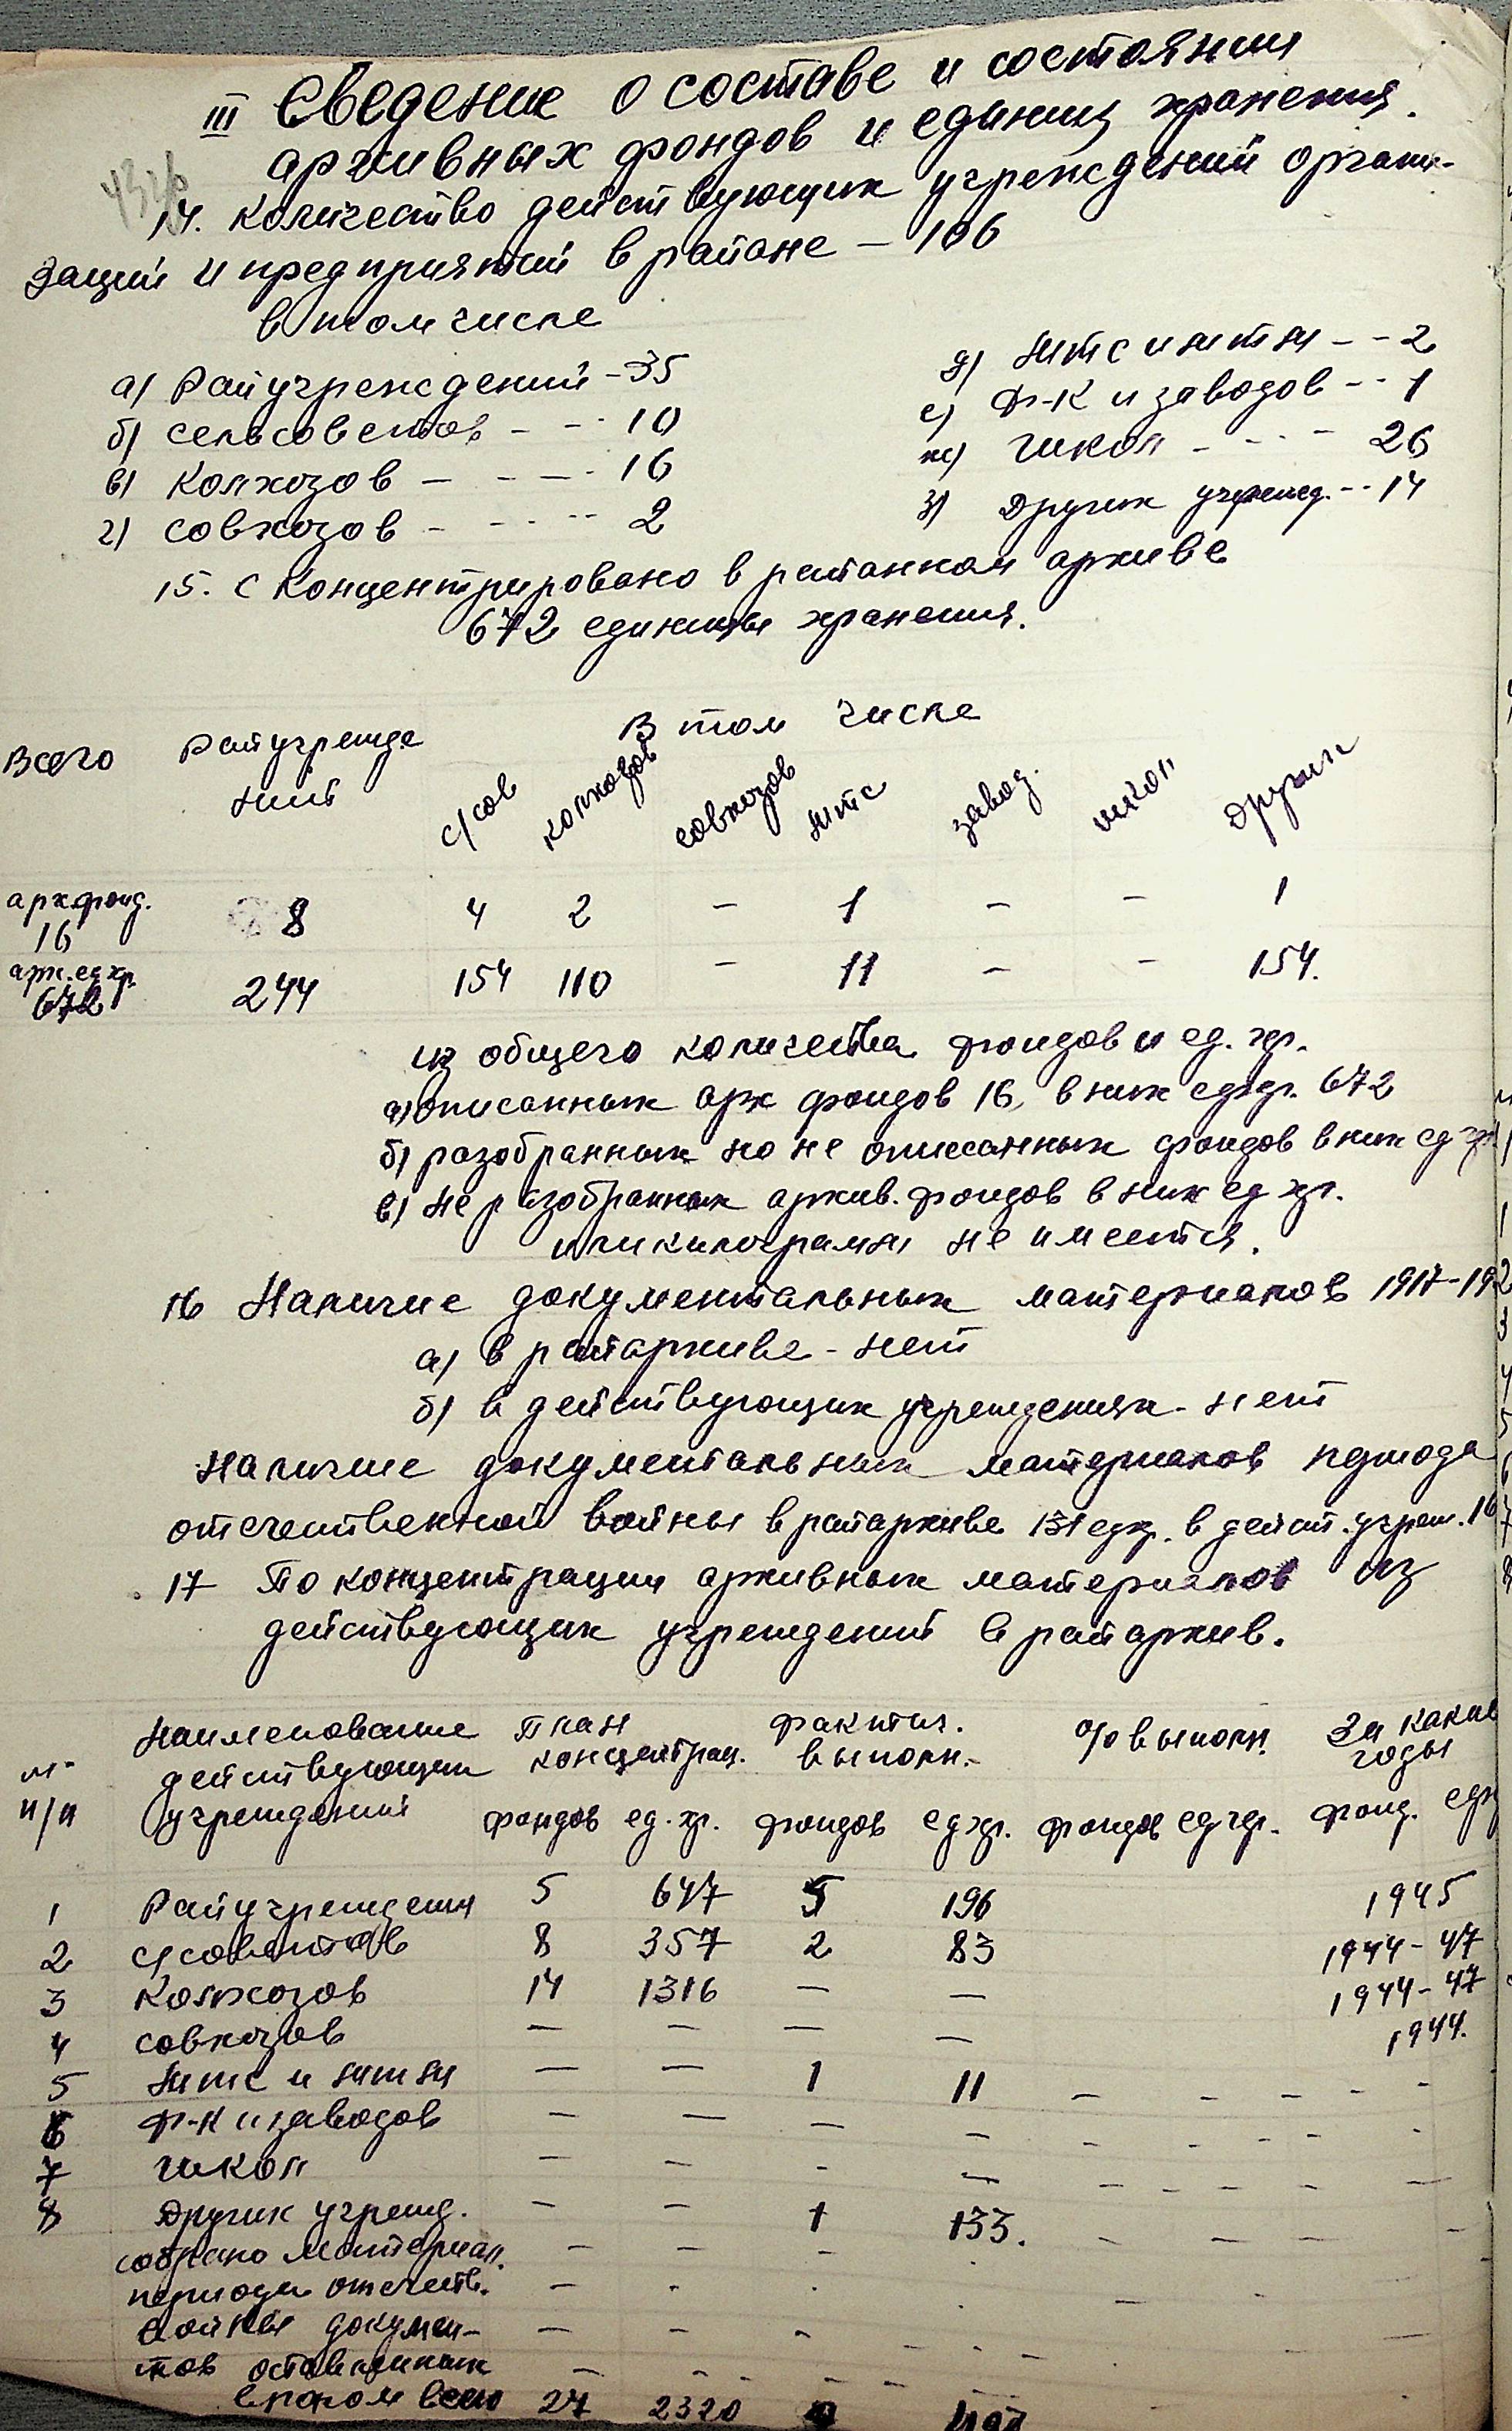 III Сведение о составе и состоянии
архивных фондов и единиц хранения.
14. Количество действующих учреждений органи-
заций и предприятий в районе – 106
в том числе
а) Райучреждений – 35
б) сельсоветов – – 10
в) Колхозов – – – 16
г) совхозов – – – 2
д) мтс и мтм – – 2
е) Ф-к и заводов – – 1
ж) школ – – – 26
з) Других учрежд. – – 14
15. Сконцентрировано в районном архиве
672 единицы хранения.
Всего Райучрежде В том числе
ний с/сов колхозов совхозов мтс завод. школ других
арх.фонд.
16 8 4 2 – 1 – – 1
арх.ед.хр.
672 244 154 110 – 11 – – 154.
из общего количества фондов и ед. хр.
а) описанных арх фондов 16, в них ед.хр. 672
б) разобранных но не описанных фондов в них ед хр
в) Не разобранных архив. фондов в них ед хр.
или килограмм не имеется.
16 Наличие документальных материалов 1917-192
а) в райархиве - нет
б) в действующих учреждениях - нет
Наличие документальных материалов периода
отечественной войны в райархиве 131 ед хр. в дейст. учреж. 16
17 По концентрации архивных материалов из
действующих учреждений в райархив.
№ Наименование План Фактич. % выполн. За какие
п/п действующих концентрац. выполн.- годы
учреждений фондов ед. хр. фондов ед хр. фондов ед хр. фонд. ед х
1 Райучреждения 5 647 5 196 1945
2 с/советов 8 357 2 83 1944-47
3 Колхозов 14 1316 – – 1944-47
4 совхозов – – – – 1944.
5 Мтс и мтм – – 1 11 – – – – –
6 Ф-к и заводов – – – – – – – – -
7 школ – – - – – – – – –
8 Других учрежд. – – 1 133. – – – –
собрано материал. – – –
периода отечеств. – - -
войны докумен- – - -
тов оставленных – - - - -
врагом всего 27 2320